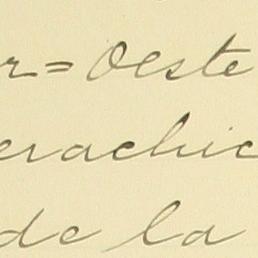 r=Oeste
erachic
de la